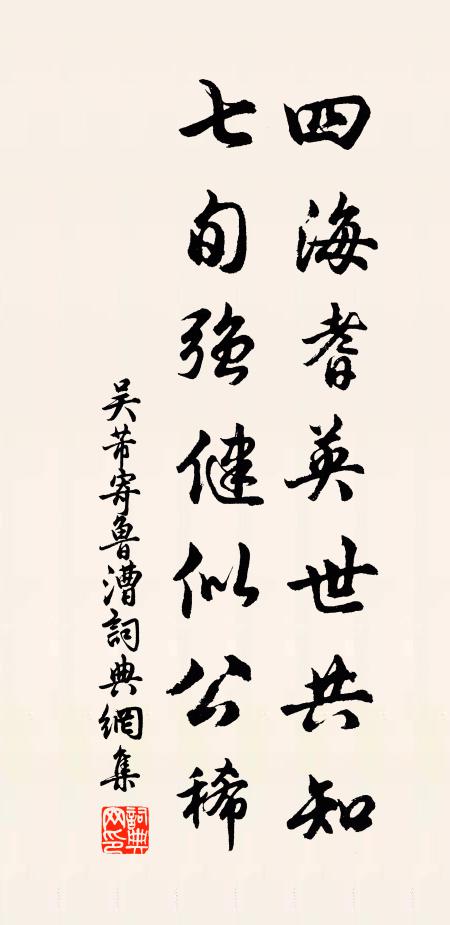 四海耆英世共知
七旬强健似公稀
吴芾寄鲁漕詞典網集
詞典网印